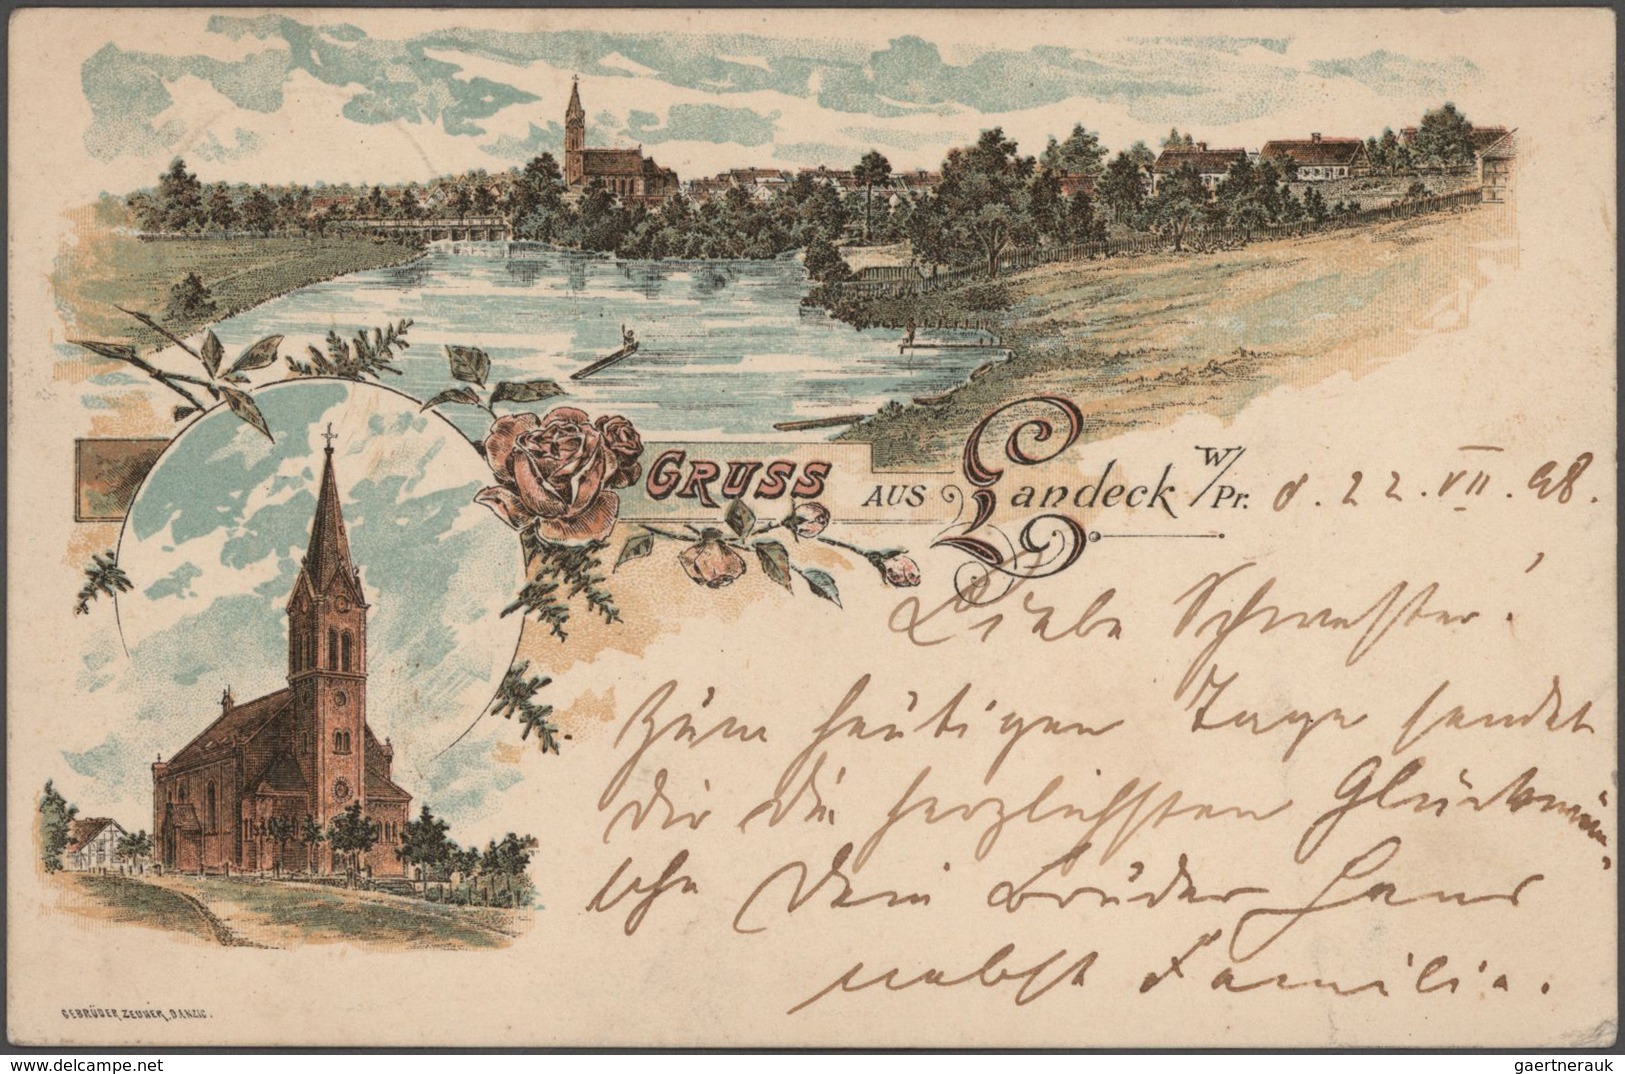 GRUSS AUS Landeck W/Pr. d. 22. VII. 98.
Liebe Schwester!
Zum heutigen Tage sendet
Dir die herzlichsten Glückwün-
sche Dein Bruder Hans
nebst Familie.
GEBRÜDER ZEUNER, DANZIG.
www.delcampe.net
gaertnerauk